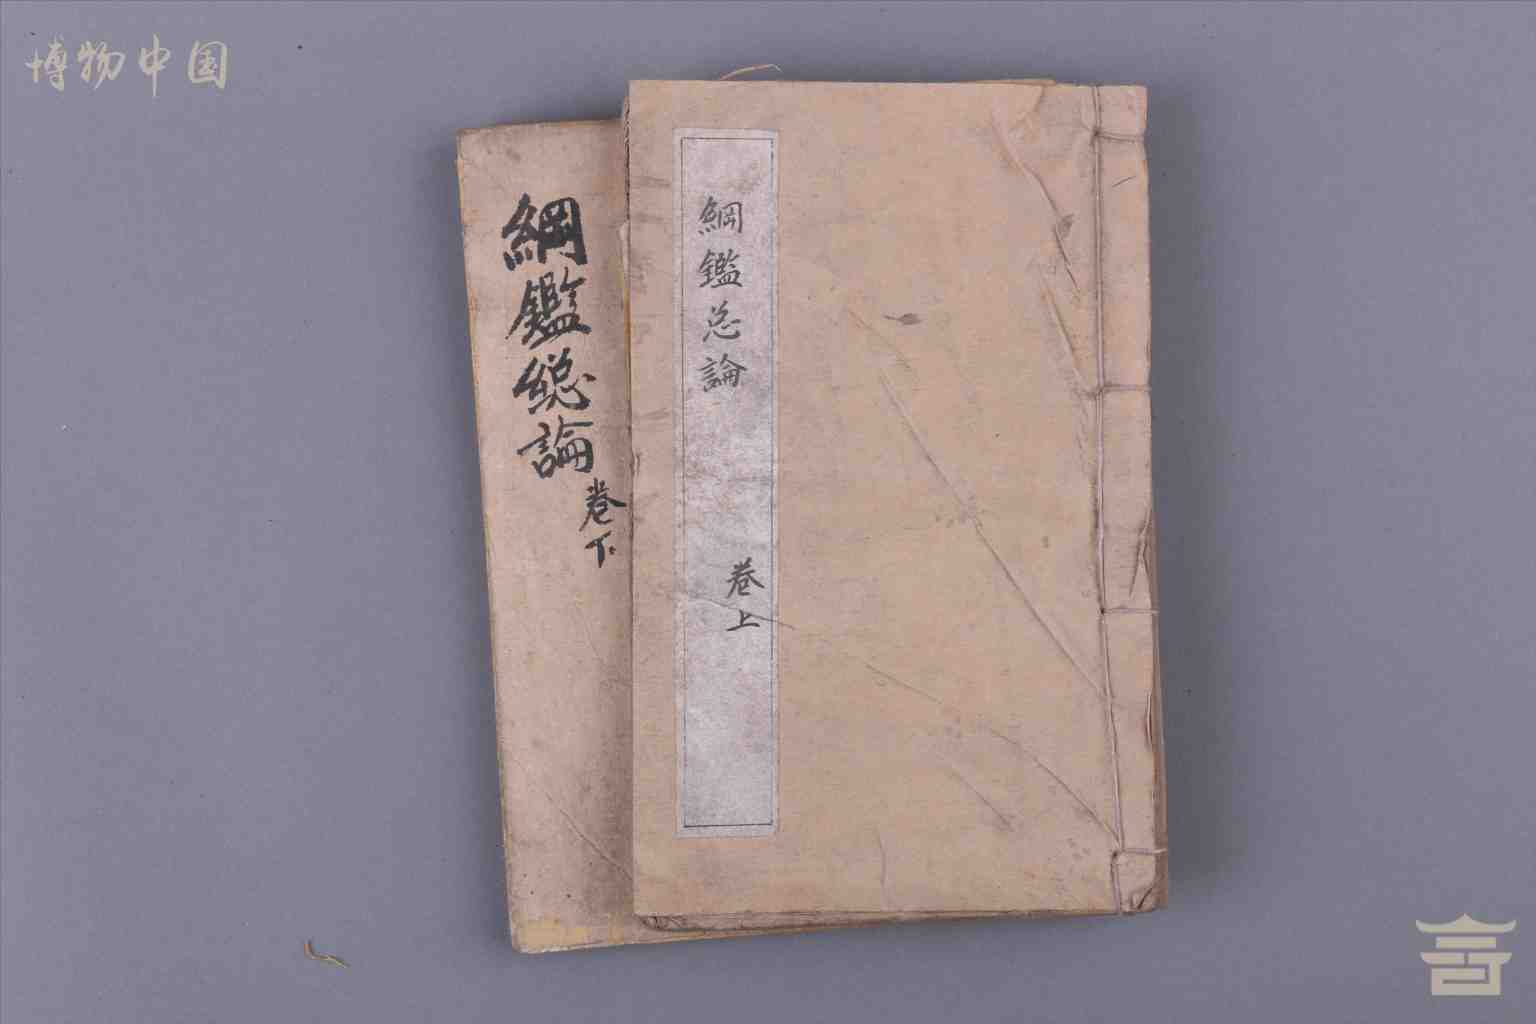 博物中国
綱鑑总論
卷上
綱鑑総論
卷下